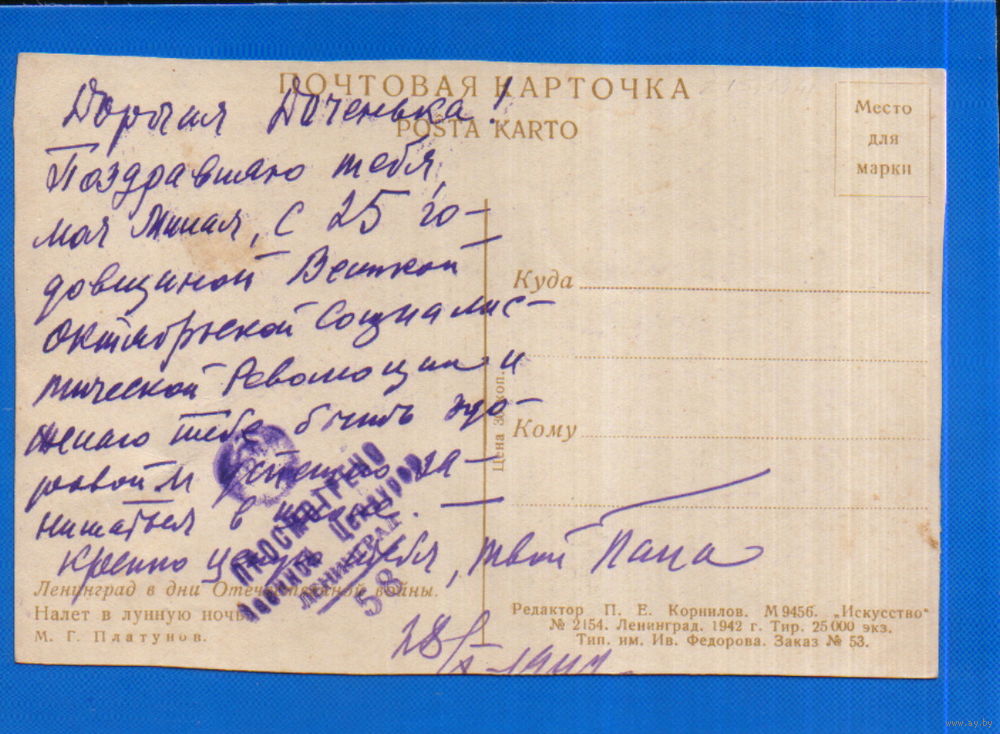 ПОЧТОВАЯ КАРТОЧКА
POŜTA KARTO
Место
для
марки
Дорогая Доченька!
Поздравляю тебя,
моя милая, с 25 го-
довщиной Великой
Октябрьской Социалис-
тической Революции и
желаю тебе быть здо-
ровой и успешно за-
ниматься в школе. —
Крепко целую тебя, твой Папа
28/X-1942
Куда
Кому
Цена 30 коп.
ПРОСМОТРЕНО
Военной Цензурой
ЛЕНИНГРАД
58
Ленинград в дни Отечественной войны.
Налет в лунную ночь.
М. Г. Платунов.
Редактор П. Е. Корнилов. М 9456. „Искусство"
№ 2154. Ленинград. 1942 г. Тир. 25 000 экз.
Тип. им. Ив. Федорова. Заказ № 53.
www.ay.by